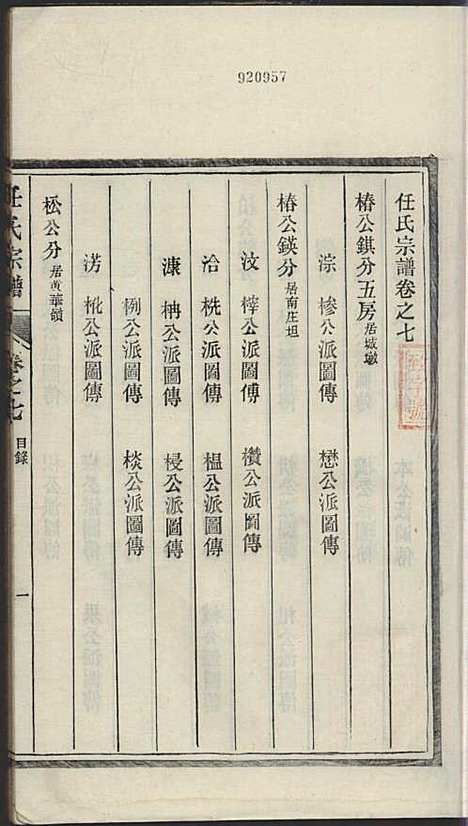 920957
任氏宗譜卷之七
椿公鍖分五房居城墩
淙 㮣公派圖傳 懋公派圖傳
椿公鍈分居南庄坦
汶 檡公派圖傳 欑公派圖傳
洽 桄公派圖傳 榅公派圖傳
漮 柟公派圖傳 梫公派圖傳
栵公派圖傳 棪公派圖傳
淓 枇公派圖傳
松公分居黃華嶺
任氏宗譜 卷之七 目錄 一